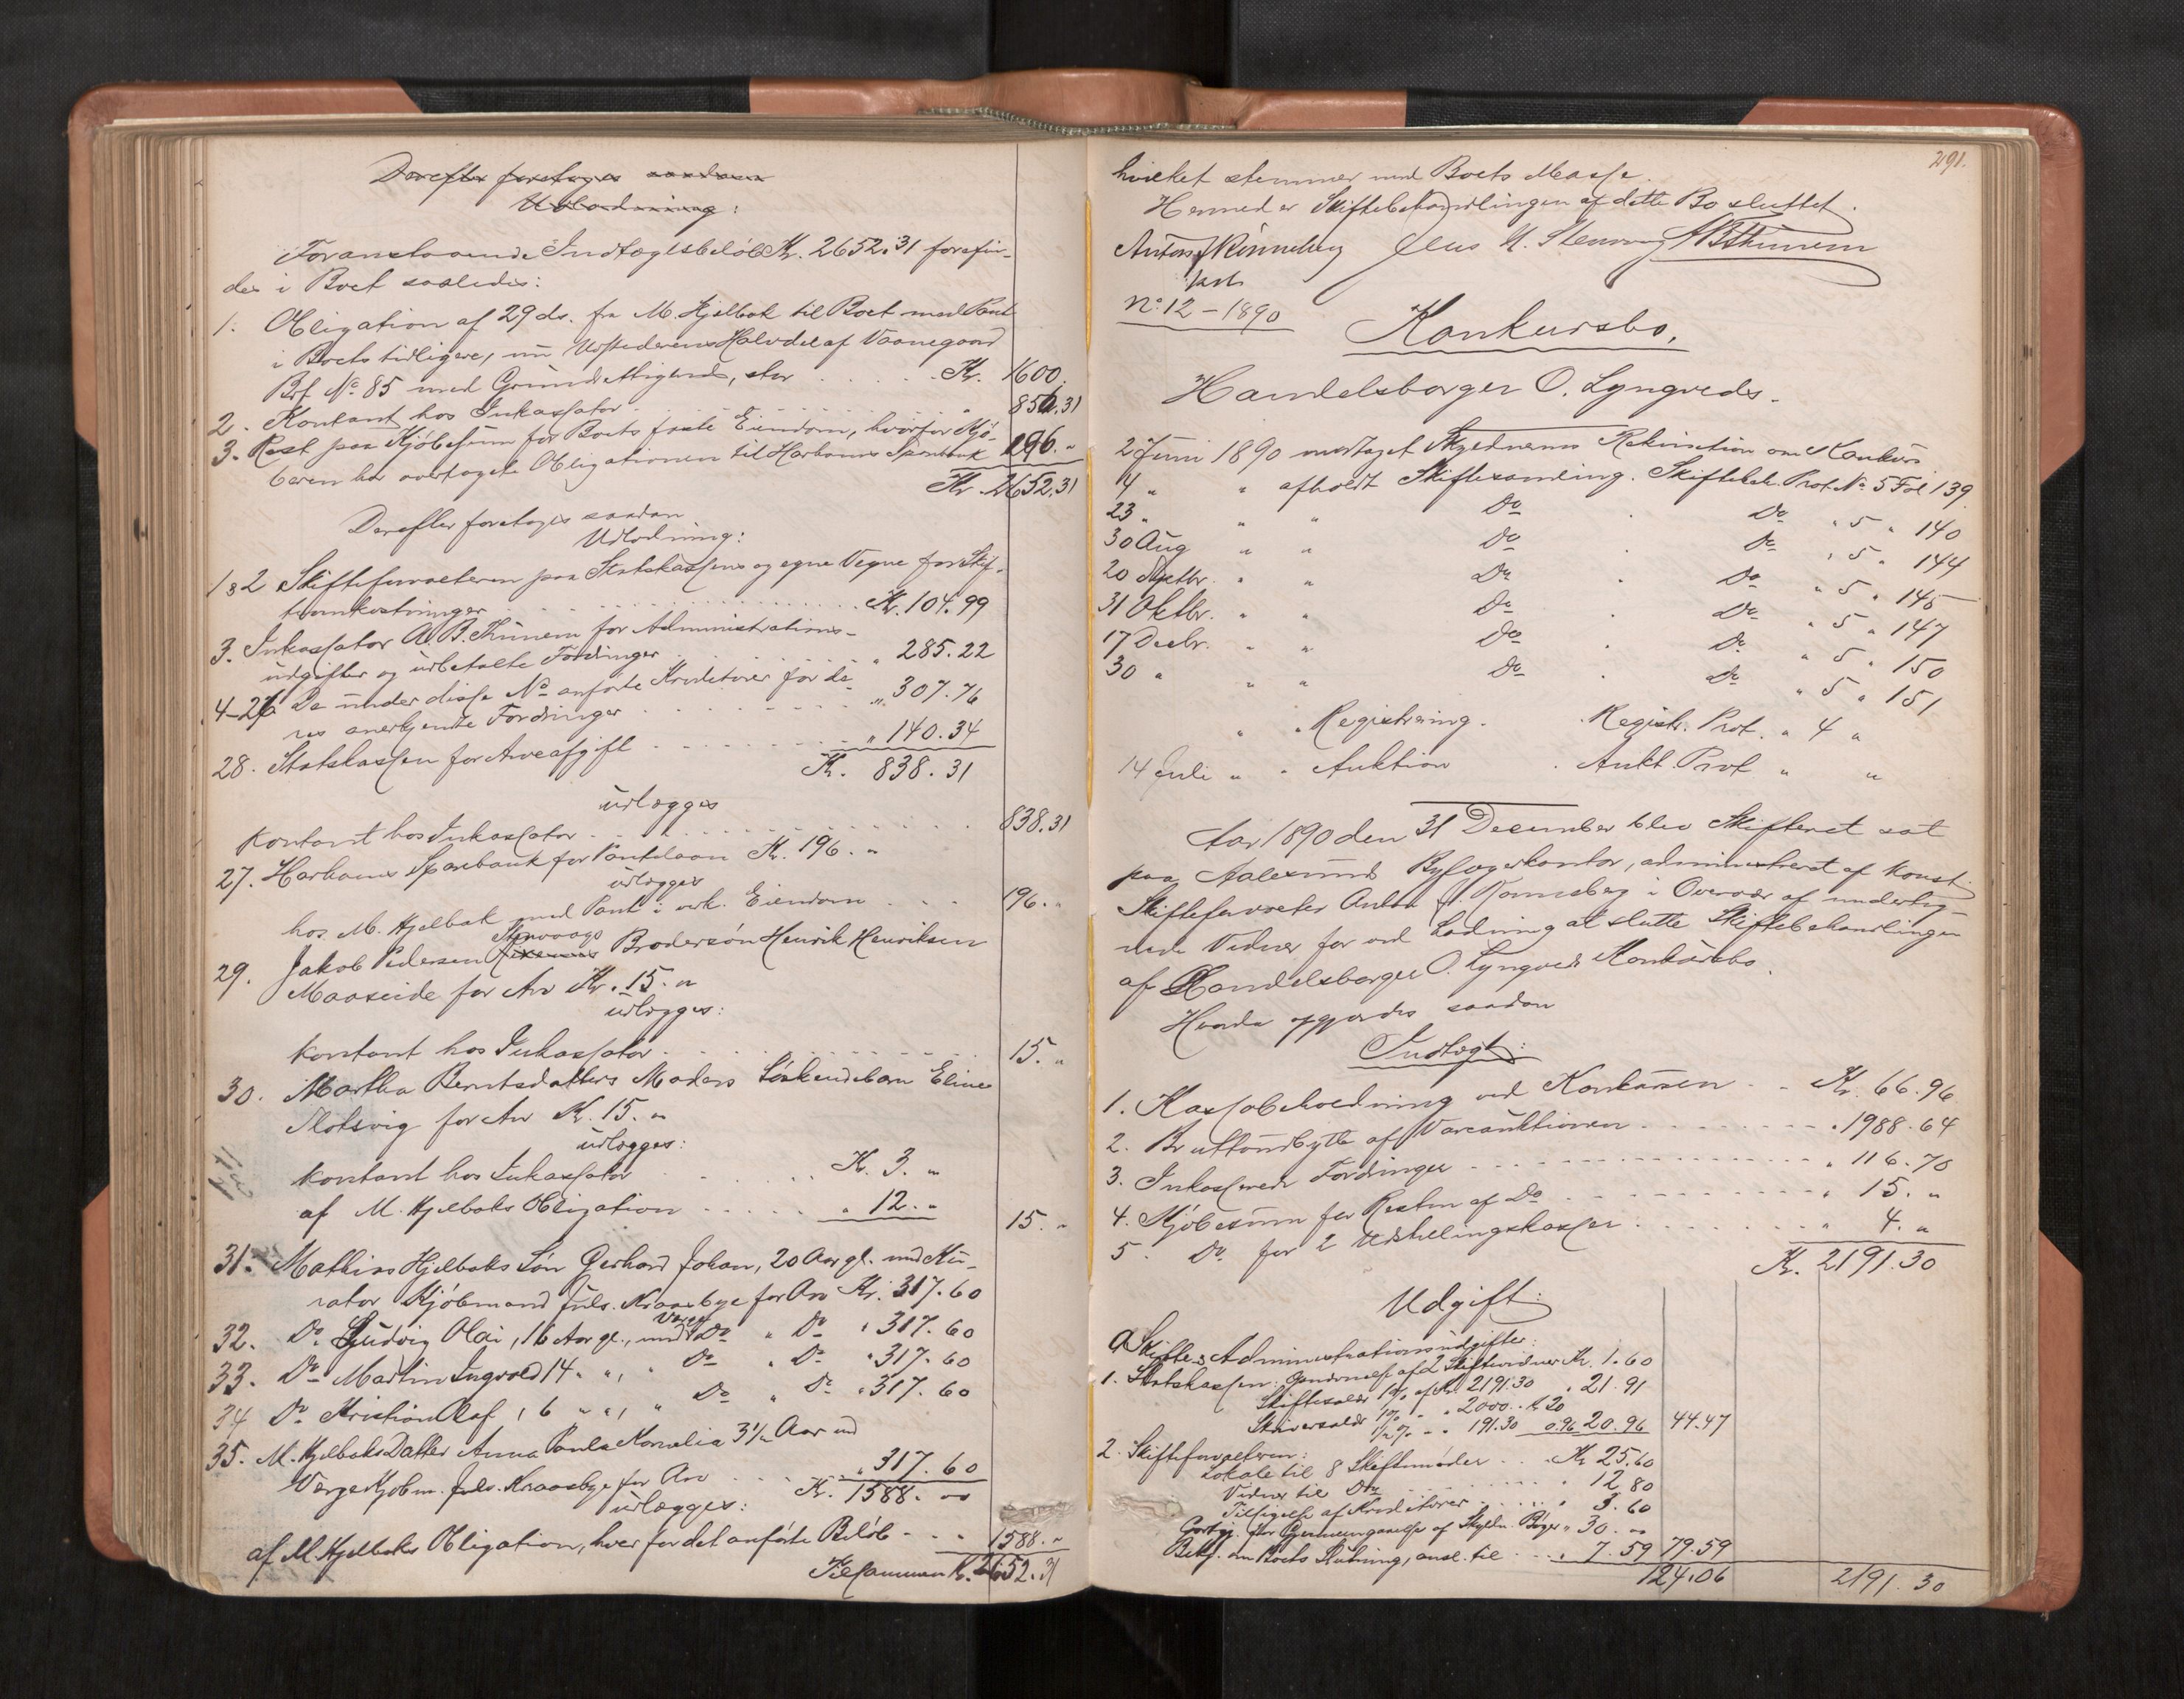 Derefter foretages saadan
Udlodning:
Foranstaaende Indtægtsbeløb Kr. 2652.31 forefin-
des i Boet saaledes:
1. Obligation af 29 ds. fra M. Hjelbak til Boet med Pant
i Boets tidligere, nu Udstederens Halvdel af Vaanegaard
Brf No 85 med Grundrettighed, stor . . . . Kr. 1600.
2. Kontant hos Inkassator . . . . " 856.31
3. Rest paa Kjøbesum for Boets faste Eiendom, hvorfor Kjø-
beren har overtaget Obligationen til Harhams Sparebank 196. "
Kr. 2652.31
Derefter foretages saadan
Udlodning:
1 & 2 Skifteforvalteren paa Statskassens og egne Vegne for Skif-
teomkostninger . . . . Kr. 104.99
3. Inkassator A. B. Thunem for Administrations-
udgifter og udbetalte Fordringer . . . . " 285.22
4-26 De under disse No anførte Kreditorer for de-
res anerkjendte Fordringer . . . . " 307.76
28. Statskassen for Arveafgift . . . . " 140.34
Kr. 838.31
udlægges
kontant hos Inkassator . . . . 838.31
27. Harhams Sparebank for Pantelaan Kr. 196. "
udlægges
hos M. Hjelbak med Pant i verk. Eiendom . . . 196. "
Stenvaags
29. Jakob Pedersen Brodersøn Henrik Henriksen
Maaseide for Arv Kr. 15. "
udlægges:
kontant hos Inkassator . . . . 15. "
30. Martha Berntsdatters Moders Søskendebarn Eline
Flotsvig for Arv Kr. 15. "
udlægges:
kontant hos Inkassator . . . . Kr. 3. "
af M. Hjelbaks Obligation . . . . " 12. "
15. "
31. Mathias Hjelbaks Søn Gerhard Johan, 20 Aar gl. med Ku-
rator Kjøbmand Juls. Kraasbye for Arv Kr. 317.60
Verge
32. Do Ludvig Olai, 16 Aar gl., med Do " Do " 317.60
33. Do Martin Ingvald 14 " ", " Do " Do " 317.60
34 Do Kristian Olaf, 6 " ", " Do " Do " 317.60
35. M. Hjelbaks Datter Anna Paula Kornelia 3 1/2 Aar med
Verge Kjøbm. Juls. Kraasbye for Arv . . . " 317.60
Kr. 1588. "
udlægges:
af M. Hjelbaks Obligation, hver for det anførte Beløb . . . 1588. "
Tilsammen Kr. 2652.31
291.
hvilket stemmer med Boets Masse.
Hermed er Skiftebehandlingen af dette Bo sluttet.
Anton J Rønneberg Jens N. Stenvaag AB Thunem
kst.
No. 12 - 1890
Konkursbo.
Handelsborger O. Lyngveds.
2 Juni 1890 modtaget Skyldnerens Rekvisition om Konkurs
4 " " afholdt Skiftesamling. Skiftebeh. Prot. No 5 Fol 139
23 " " " Do . Do " 5 " 140
30 Aug " " Do . Do " 5 " 144
20 Septbr. " " Do Do " 5 " 145
31 Oktbr. " " Do . Do " 5 " 147
17 Decbr. " " Do . Do " 5 " 150
30 " " " Do . Do " 5 " 151
" " Registrering . Registr. Prot. " 4 "
14 Juli " " Auktion . Aukt. Prot " "
Aar 1890 den 31 December blev Skifteret sat
paa Aalesunds Byfogedkontor, administreret af konst.
Skifteforvalter Anton J. Rønneberg i Overvær af underteg-
nede Vidner for ved Lodning at slutte Skiftebehandlingen
af Handelsborger O. Lyngveds Konkursbo.
Hvorda opgjordes saadan
Indtægt:
1. Kassabeholdning ved Konkursen . . Kr. 66.96
2. Bruttoudbytte af Vareauktionen . . . . " 1988.64
3. Inkasserede Fordringer . . . . " 116.70
4. Kjøbesum for Resten af Do . . . . " 15. "
5. Do for 2 Udstillingskasser . . . . " 4. "
Kr. 2191.30
Udgift:
a Skifte- & Administrationsudgifter:
1. Statskassen: Gjenværelse af 2 Skiftevidner Kr. 1.60
Skiftesalær 1% af Kr. 2191.30 " 21.91
Skriversalær 1% " " 2000 . Kr 20
1/2 % " " 191.30 0.96 20.96 44.47
2. Skifteforvalteren:
Lokale til 8 Skiftemøder . . . Kr 25.60
Vidner til Do . . . . " 12.80
Tilsigelse af Kreditorer . . . . " 3.60
Godtgj. for Gjennemgaaelse af Skyldn. Bøger " 30. "
Bekj. om Boets Slutning, ansl. til . . . " 7.59 79.59
124.06 2191.30